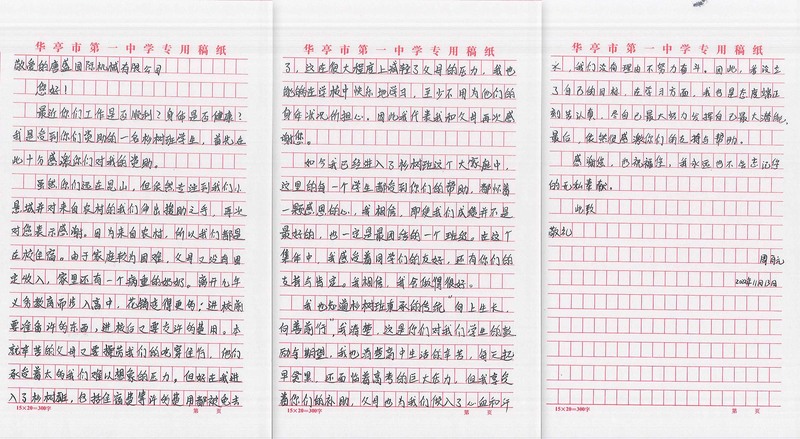 华亭市第一中学专用稿纸
敬爱的唐盛国际机械有限公司
您好！
最近你们工作是否顺利？身体是否健康？
我是受到你们资助的一名杨树班学生，首先在
此十分感谢你们对我的资助。
虽然你们远在昆山，但依然关注到我们小
县城并对来自农村的我们伸出援助之手，再次
对您表示感谢。因为来自农村，所以我们都是
在校住宿。由于家庭较为困难，父母又没有固
定收入，家里还有一个病重的奶奶。离开九年
义务教育而步入高中，花销变得更多：进校前
要准备许多东西，进校后又要交许多费用。本
就辛苦的父母又要操劳我们的吃穿住行，他们
承受着太多我们难以想象的压力。但好在我进
入了杨树班，包括住宿费等许多费用都被免去
15×20=300字
第 页
华亭市第一中学专用稿纸
了，这在很大程度上减轻了父母的压力，我也
能够在学校中快乐地学习，至少不用为他们的
身体状况而担心，因此我代表我和父母再次感
谢您。
如今我已经进入了杨树班这个大家庭中，
这里的每一个学生都受到你们的帮助，都怀着
一颗感恩的心，我相信，即使我们成绩并不是
最好的，也一定是最团结的一个班级。在这个
集体中，我感受着同学们的友好，还有你们的
支持与肯定。我相信，我会做得很好。
我也知道杨树班秉承的传统"向上生长，
向善而行"，我清楚，这是你们对我们学生的鼓
励与期望，我也清楚高中生活的辛苦，每天起
早贪黑，还面临着高考的巨大压力，但我享受
着你们的补助，父母也为我们倾入了心血和汗
15×20=300字
第 页
水，我们没有理由不努力奋斗。因此，我设立
了自己的目标，在学习方面，我也是态度端正
刻苦认真，尽自己最大努力发挥自己最大潜能。
最后，依然很感激你们的支持与帮助。
感谢您，也祝福您，我永远也不会忘记你
的无私奉献。
此致
敬礼
15×20=300字
第 页